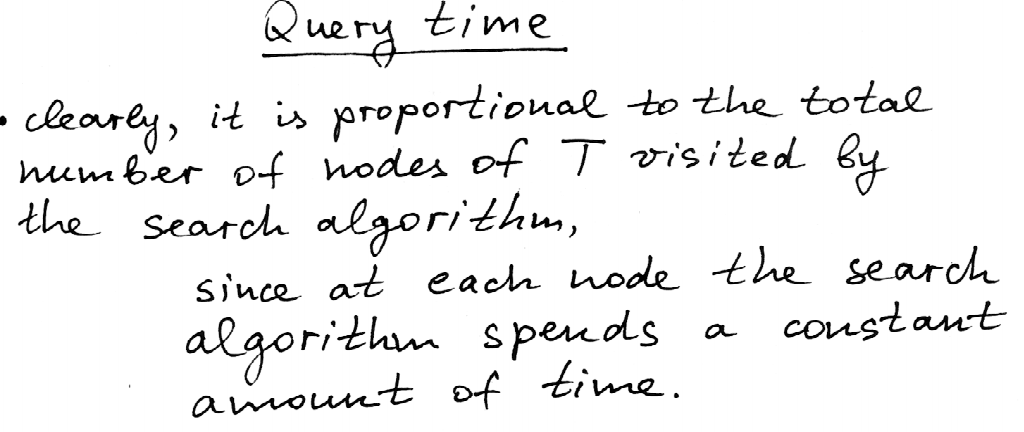 Query time
• clearly, it is proportional to the total
number of nodes of T visited by
the search algorithm,
since at each node the search
algorithm spends a constant
amount of time.